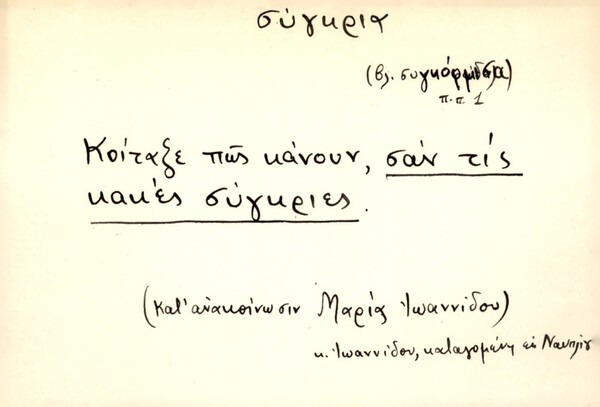 σύγκρια
(βλ. συγκόρμισσα)
π.π. 1
Κοίταξε πῶς κάνουν, σάν τίς
κακές σύγκριες.
(Κατ' ἀνακοίνωσιν Μαρίας Ἰωαννίδου)
κ. Ἰωαννίδου, καταγομένη ἐκ Ναυπλίου